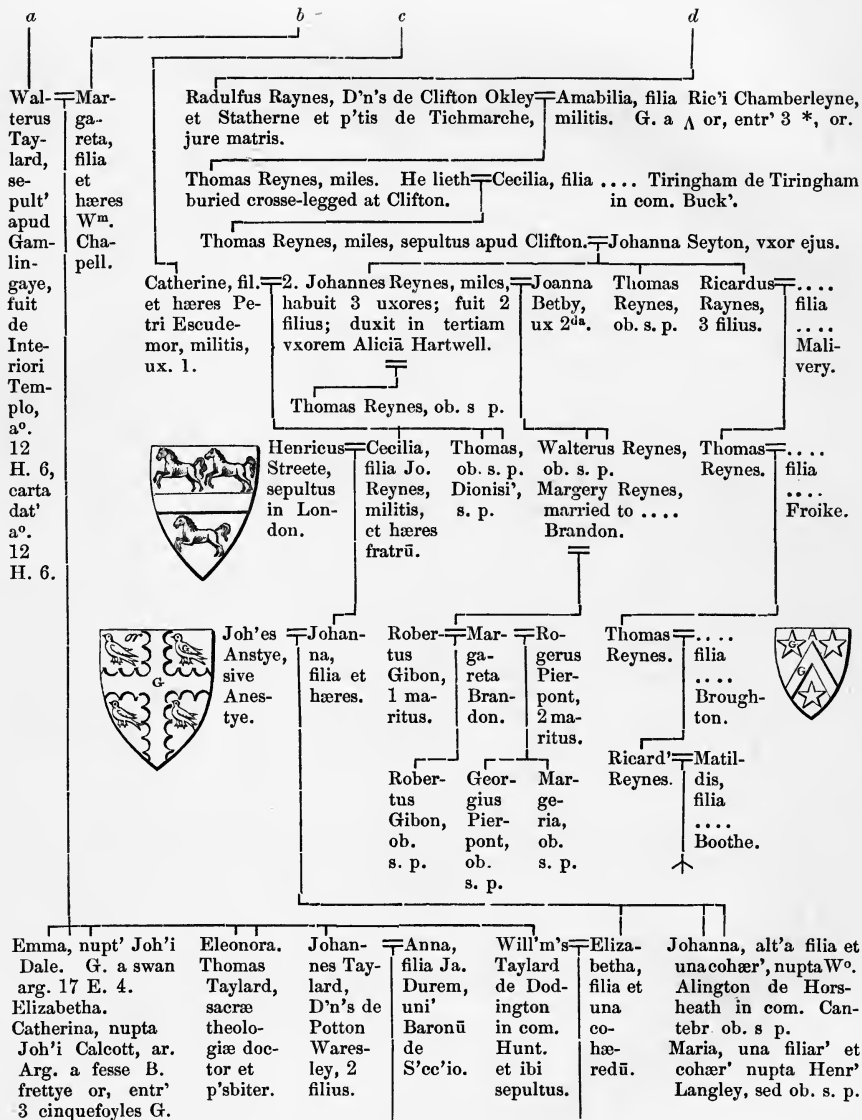 a b c d
Wal-
terus
Tay-
lard,
se-
pult'
apud
Gam-
lin-
gaye,
fuit
de
Inte-
riori
Tem-
plo,
aº.
12
H. 6,
carta
dat'
aº.
12
H. 6.
Mar-
ga-
reta,
filia
et
hæres
Wᵐ.
Cha-
pell.
Radulfus Raynes, D'n's de Clifton Okley
et Statherne et p'tis de Tichmarche,
jure matris.
Amabilia, filia Ric'i Chamberleyne,
militis. G. a ʌ or, entr' 3 *, or.
Thomas Reynes, miles. He lieth
buried crosse-legged at Clifton.
Cecilia, filia .... Tiringham de Tiringham
in com. Buck'.
Thomas Reynes, miles, sepultus apud Clifton.
Johanna Seyton, vxor ejus.
Catherine, fil.
et hæres Pe-
tri Escude-
mor, militis,
ux. 1.
2. Johannes Reynes, miles,
habuit 3 uxores; fuit 2
filius; duxit in tertiam
vxorem Aliciā Hartwell.
Joanna
Betby,
ux 2ᵈᵃ.
Thomas
Reynes,
ob. s. p.
Ricardus
Raynes,
3 filius.
....
filia
....
Mali-
very.
Thomas Reynes, ob. s p.
Henricus
Streete,
sepultus
in Lon-
don.
Cecilia,
filia Jo.
Reynes,
militis,
et hæres
fratrū.
Thomas,
ob. s. p.
Dionisi',
s. p.
Walterus Reynes,
ob. s. p.
Margery Reynes,
married to ....
Brandon.
Thomas
Reynes.
....
filia
....
Froike.
G
Joh'es
Anstye,
sive
Anes-
tye.
Johan-
na,
filia et
hæres.
Rober-
tus
Gibon,
1 ma-
ritus.
Mar-
ga-
reta
Bran-
don.
Ro-
gerus
Pier-
pont,
2 ma-
ritus.
Thomas
Reynes.
....
filia
....
Brough-
ton.
G A
G
Rober-
tus
Gibon,
ob.
s. p.
Geor-
gius
Pier-
pont,
ob.
s. p.
Mar-
ge-
ria,
ob.
s. p.
Ricard'
Reynes.
Matil-
dis,
filia
....
Boothe.
Emma, nupt' Joh'i
Dale. G. a swan
arg. 17 E. 4.
Elizabetha.
Catherina, nupta
Joh'i Calcott, ar.
Arg. a fesse B.
frettye or, entr'
3 cinquefoyles G.
Eleonora.
Thomas
Taylard,
sacræ
theolo-
giæ doc-
tor et
p'sbiter.
Johan-
nes Tay-
lard,
D'n's de
Potton
Wares-
ley, 2
filius.
Anna,
filia Ja.
Durem,
uni'
Baronū
de
S'cc'io.
Will'm's
Taylard
de Dod-
ington
in com.
Hunt.
et ibi
sepultus.
Eliza-
betha,
filia et
una
co-
hæ-
redū.
Johanna, alt'a filia et
una cohær', nupta Wº.
Alington de Hors-
heath in com. Can-
tebr ob. s p.
Maria, una filiar' et
cohær' nupta Henr'
Langley, sed ob. s. p.